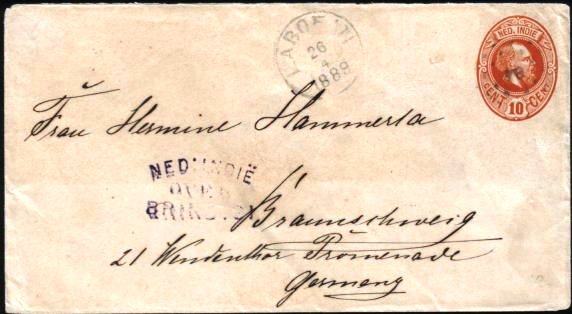 NED. INDIE
CENT 10 CENT
LABOEAN
26
4
1889
Frau Hermine Hammerla
NED: INDIË
OVER
BRINDISI
Braunschweig
21 Wendenthor Promenade
Germany